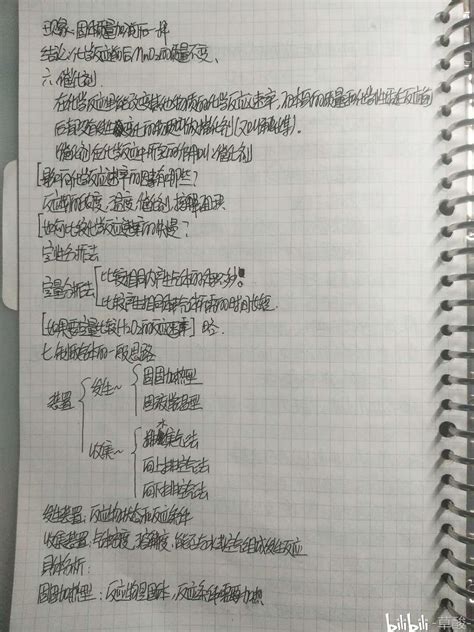 现象:固体质量加前后一样
结论:化学反应前后MnO₂的质量不变、
六.催化剂.
在化学反应里能改变其他物质的化学反应速率,而本身的质量和化学性质在反应前
后都没有发生变化的物质叫做催化剂(又叫触媒)。
催化剂在化学反应中所起的作用叫催化剂
[影响化学反应速率的因素有哪些?
反应物的浓度,温度,催化剂,接触面积.
[如何比较化学反应速率的快慢?
定性分析法
定量分析法[比较相同时间内产生气体的体积多少。
比较产生相同体积气体所需的时间长短.
[如果要定量比较H₂O₂的反应速率] 略.
七.制取气体的一般思路
装置
发生~
固固加热型
固液常温型
收集~
排水集气法
向上排空气法
向下排空气法
发生装置:反应物状态和反应条件
收集装置:气体密度,溶解度,能否与水和空气组成发生反应
具体分析:
固固加热型:反应物是固体,反应条件需要加热.
bilibili 草酸